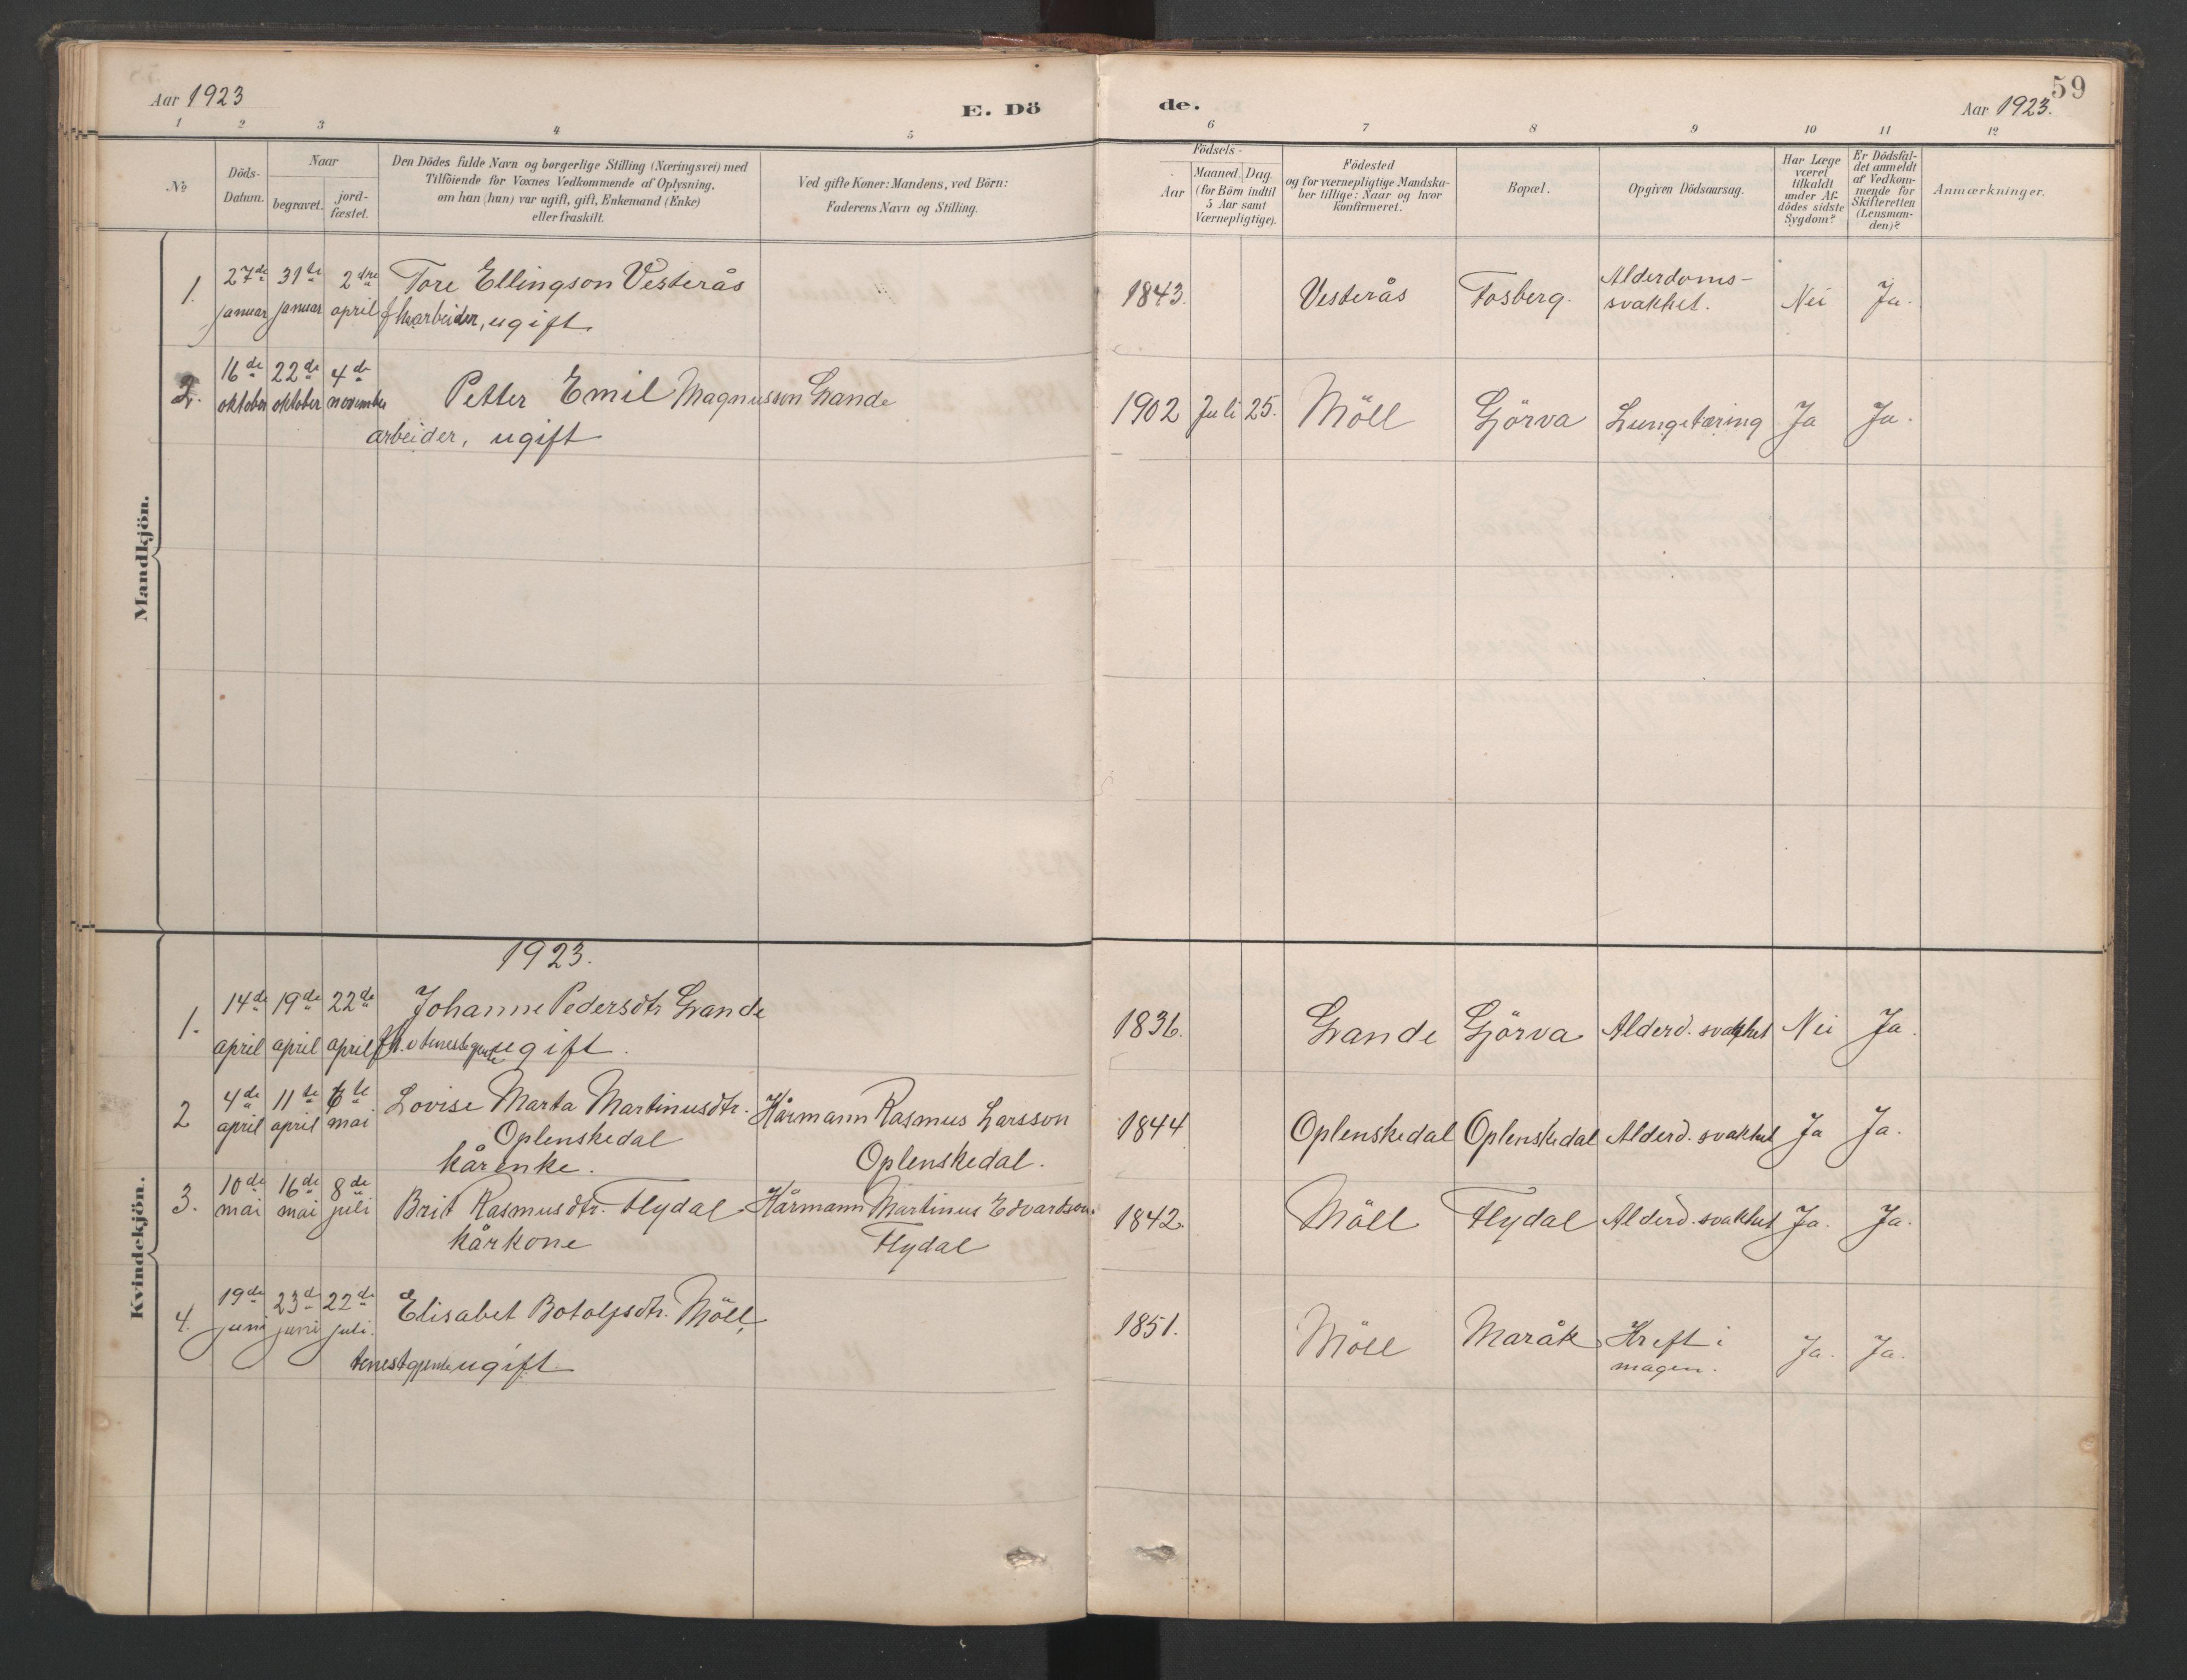 Aar 1923
E. Dö
de.
Aar 1923.
59
1 2 3 4 5 6 7 8 9 10 11 12
№
Döds-
Datum.
Naar
begravet.
jord-
fæstet.
Den Dödes fulde Navn og borgerlige Stilling (Næringsvei) med
Tilföiende for Voxnes Vedkommende af Oplysning,
om han (hun) var ugift, gift, Enkemand (Enke)
eller fraskilt.
Ved gifte Koner: Mandens, ved Börn:
Faderens Navn og Stilling.
Födsels-
Aar
Maaned. Dag.
(for Börn indtil
5 Aar samt
Værnepligtige).
Födested
og for værnepligtige Mandska-
ber tillige: Naar og hvor
konfirmeret.
Bopæl.
Opgiven Dödsaarsag.
Har Læge
været
tilkaldt
under Af-
dödes sidste
Sygdom?
Er Dödsfal-
det anmeldt
af Vedkom-
mende for
Skifteretten
(Lensman-
den)?
Anmærkninger.
Mandkjön.
1. 27de januar 31te januar 2dre april Tore Ellingson Vesterås
arbeider, ugift
1843. Vesterås Fosberg. Alderdoms-
svakhet. Nei Ja.
2. 16de oktober 22de oktober 4de november Petter Emil Magnusson Grande
arbeider, ugift
1902 Juli 25. Möll Gjörva Lungetæring Ja Ja.
Kvindekjön.
1923.
1. 14de april 19de april 22de april Johanne Pedersdtr Grande
ugift.
1836. Grande Gjörva Alderd. svakhet Nei Ja.
2 4de april 11te april 6te mai Lovise Marta Martinusdtr.
Oplenskedal
kårenke.
Kårmann Rasmus Larsson
Oplenskedal.
1844 Oplenskedal Oplenskedal Alderd. svakhet Ja Ja.
3. 10de mai 16de mai 8de juli Brit Rasmusdtr. Flydal
kårkone
Kårmann Martinus Edvardson
Flydal
1842. Möll Flydal Alderd. svakhet Ja. Ja.
4. 19de juni 23de juni 22de juli. Elisabet Botolfsdtr. Möll,
tenestgjente ugift.
1851. Möll Maråk Kreft i
magen. Ja. Ja.